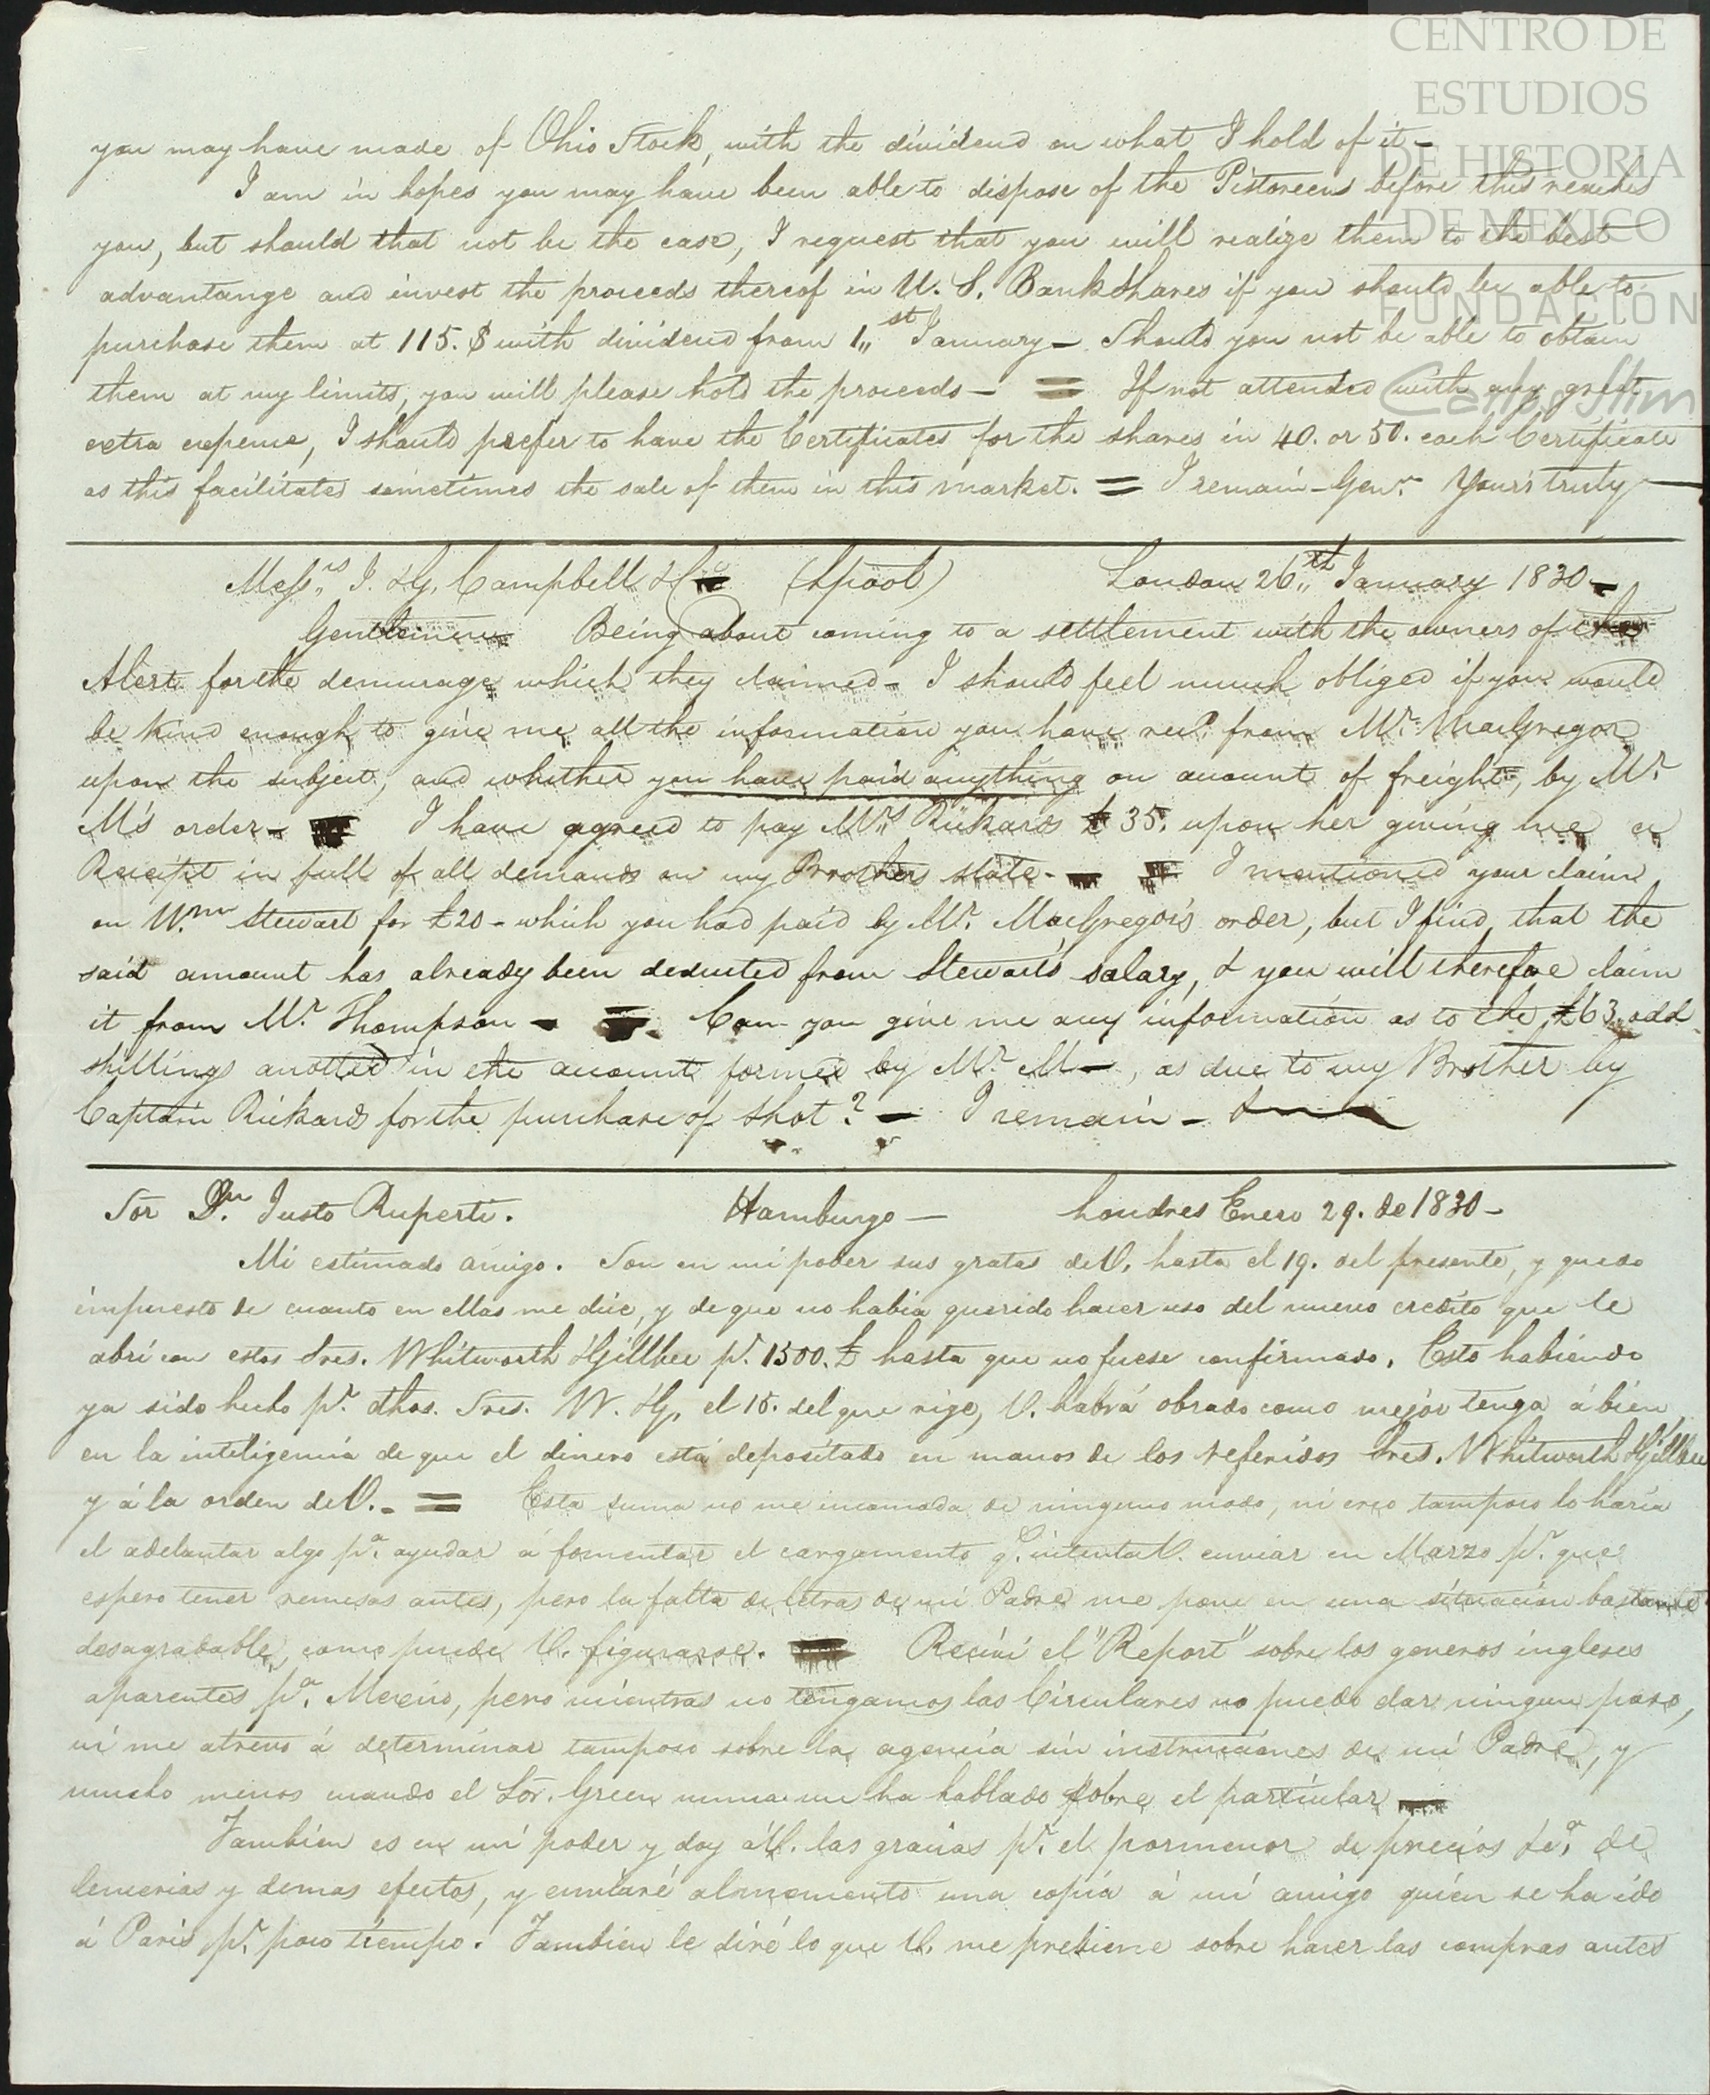 CENTRO DE
ESTUDIOS
DE HISTORIA
DE MEXICO
FUNDACIÓN
Carlos Slim
you may have made of Ohio Stock, with the dividend on what I hold of it –
I am in hopes you may have been able to dispose of the Pistoreens before this reaches
you, but should that not be the case, I request that you will realize them to the best
advantange and invest the proceeds thereof in U. S. Bank Shares if you should be able to
purchase them at 115. $ with dividend from 1,,st January – Should you not be able to obtain
them at my limits, you will please hold the proceeds – = If not attended with any great
extra expense, I should prefer to have the Certificates for the shares in 40. or 50. each Certificate
as this facilitates sometimes the sale of them in this market. = I remain – Gen.n Your's truly –
Mess,,rs I. & G. Campbell & Co (Lpool) London 26,,th January 1830 –
Gentlemen Being about coming to a settlement with the owners of the
Alert for the demurage which they claimed – I should feel much obliged if you would
be kind enough to give me all the information you have rec.d from Mr. MacGregor
upon the subject, and whether you have paid anything on account of freight, by Mr.
M's order – = I have agreed to pay Mrs. Rickards £ 35. upon her giving me a
Receipt in full of all demands on my Brothers state – = I mentioned your claim
on Wm. Stewart for £20 – which you had paid by Mr. MacGregor's order, but I find, that the
said amount has already been deducted from Stewart's salary, & you will therefore claim
it from Mr. Thompson – = Can you give me any information as to the £63. odd
shillings in the account formed by Mr. M –, as due to my Brother by
Captain Rickard for the purchase of shot? – I remain – &
Sor Dn. Justo Ruperti. Hamburgo – Londres Enero 29. de 1830 –
Mi estimado amigo. Son en mi poder sus gratas de V. hasta el 19. del presente, y quedo
impuesto de cuanto en ellas me dice, y de que no habia querido hacer uso del nuevo credito que le
abri con estos Sres. Whitworth & Gillbee pr. 1500. £ hasta que no fuese confirmado. Esto habiendo
ya sido hecho pr. dhos. Sres. W. & G. el 15. del que rige, V. habrá obrado como mejor tenga á bien
en la inteligencia de que el dinero está depositado en manos de los referidos Sres. Whitworth & Gillbee
y á la orden de V. – = Esta suma no me incomoda de ninguno modo, ni creo tampoco lo haria
el adelantar algo pa. ayudar á fomentar el cargamento q. intenta V. enviar en Marzo pr. que
espero tener remesas antes, pero la falta de letras de mi Padre me pone en una situacion bastante
desagrabable, como puede V. figurarse. = Recivi el "Report" sobre los generos ingleses
aparentes pa. Mexico, pero mientras no tengamos las Circulares no puedo dar ningun paso,
ni me atrevo á determinar tampoco sobre la agencia sin instrucciones de mi Padre, y
mucho menos cuando el Sor. Green nunca me ha hablado sobre el particular –
Tambien es en mi poder y doy á V. las gracias pr. el pormenor de precios &a. de
lencerias y demas efectos, y enviaré al momento una copia á mi amigo quién se ha ido
á Paris pr. poco tiempo. Tambien le diré lo que V. me previene sobre hacer las compras antes